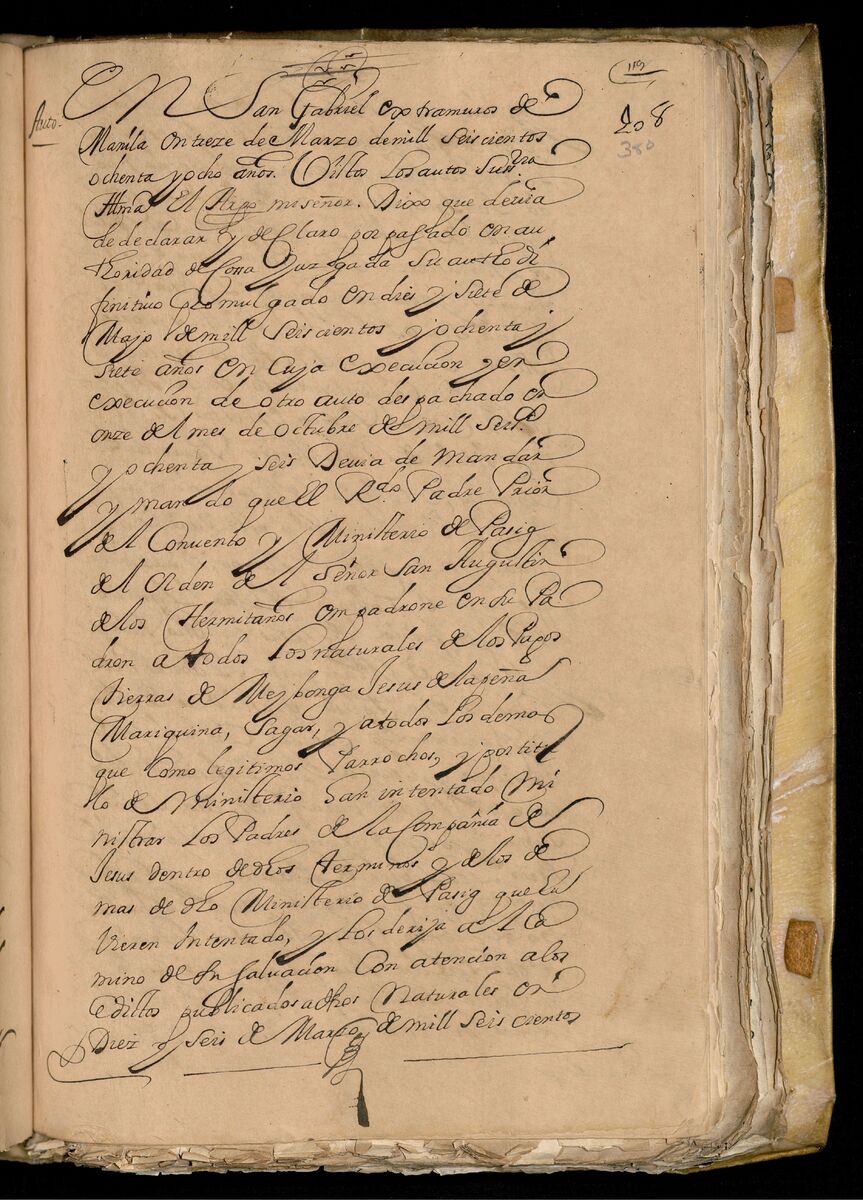 119
208
380
Auto.
En San Gabriel extramuros de
Manila en treze de Marzo de mill seiscientos
ochenta y ocho años. Vistos los autos Su Sria
Illma El Arzpo mi señor. Dixo que devia
de declarar y declaro por passado en au
thoridad de Cossa Juzgada Su autto di
finitivo promulgado en dies y siete de
Mayo de mill Seiscientos y ochenta y
siete años en cuya execucion y en
execucion de otro auto despachado en
onze del mes de octubre de mill seiss.
y ochenta y seis Devia de mandar
y mando que El Rdo Padre Prior
del Convento y Ministerio de Pasig
del orden del Señor San Augustin
de los Hermitaños empadrone en su Pa
dron a todos los naturales de los
tierras de Meybonga Jesus de la peña
Mariquina, Sagar, y a todos los demas
que como legitimos Parrochos, y por titu
lo de Ministerio han intentado Mi
nistrar Los Padres de la Compañia de
Jesus dentro de dhos terminos y de los de
mas de dho Ministerio de Pasig que hu
vieren Intentado, y los derija al ca
mino de su salvacion Con atencion a los
Edittos publicados a dhos Naturales en
Diez y seis de Marzo de mill seiscientos